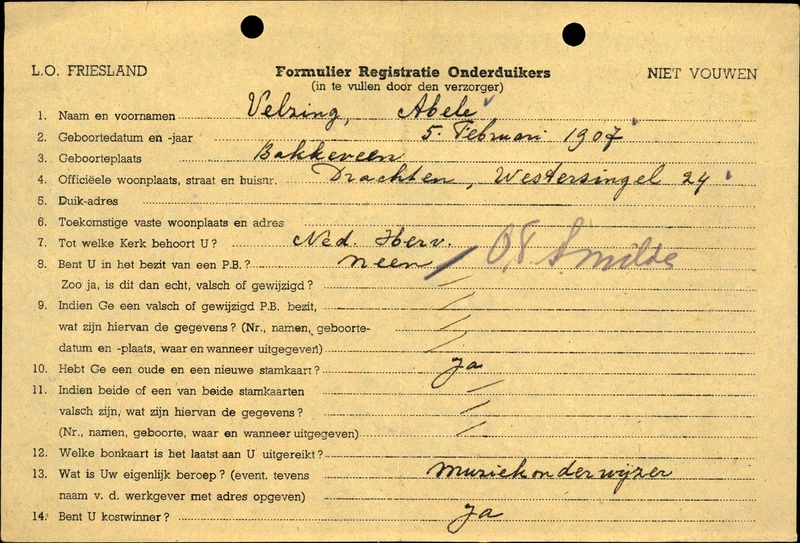 L.O. FRIESLAND Formulier Registratie Onderduikers NIET VOUWEN
(in te vullen door den verzorger)
1. Naam en voornamen Velzing, Abele
2. Geboortedatum en -jaar 5. Februari 1907
3. Geboorteplaats Bakkeveen
4. Officiëele woonplaats, straat en huisnr. Drachten, Westersingel 24
5. Duik-adres
6. Toekomstige vaste woonplaats en adres
7. Tot welke Kerk behoort U? Ned. Herv.
8. Bent U in het bezit van een P.B.? neen / O.T. Smilde
Zoo ja, is dit dan echt, valsch of gewijzigd? //
9. Indien Ge een valsch of gewijzigd P.B. bezit, //
wat zijn hiervan de gegevens? (Nr., namen, geboorte- //
datum en -plaats, waar en wanneer uitgegeven) //
10. Hebt Ge een oude en een nieuwe stamkaart? ja
11. Indien beide of een van beide stamkaarten //
valsch zijn, wat zijn hiervan de gegevens? //
(Nr., namen, geboorte, waar en wanneer uitgegeven) //
12. Welke bonkaart is het laatst aan U uitgereikt?
13. Wat is Uw eigenlijk beroep? (event. tevens muziekonderwijzer
naam v. d. werkgever met adres opgeven)
14. Bent U kostwinner? ja